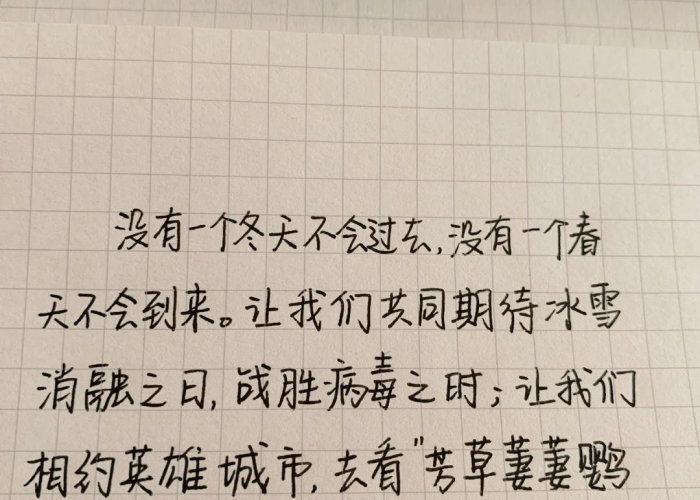 没有一个冬天不会过去,没有一个春
天不会到来。让我们共同期待冰雪
消融之日,战胜病毒之时;让我们
相约英雄城市,去看"芳草萋萋鹦